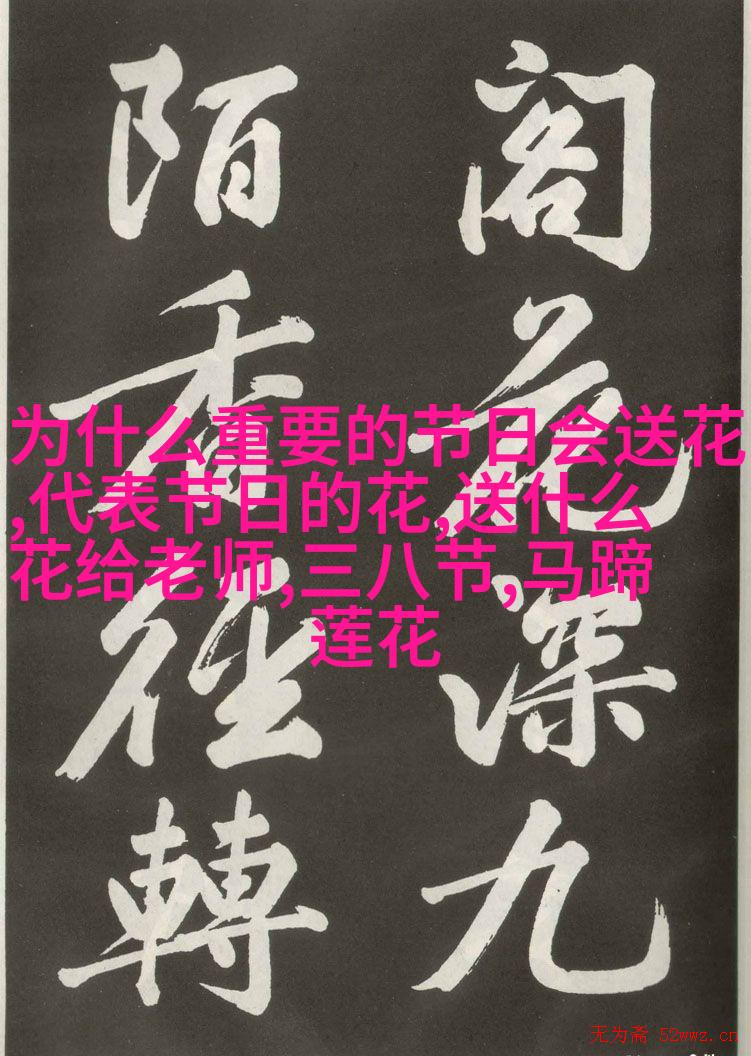 閤花深九
陌香徑轉
为什么重要的节日会送花
,代表节日的花,送什么
花给老师,三八节,马蹄
莲花
无为斋 52wwz.cn